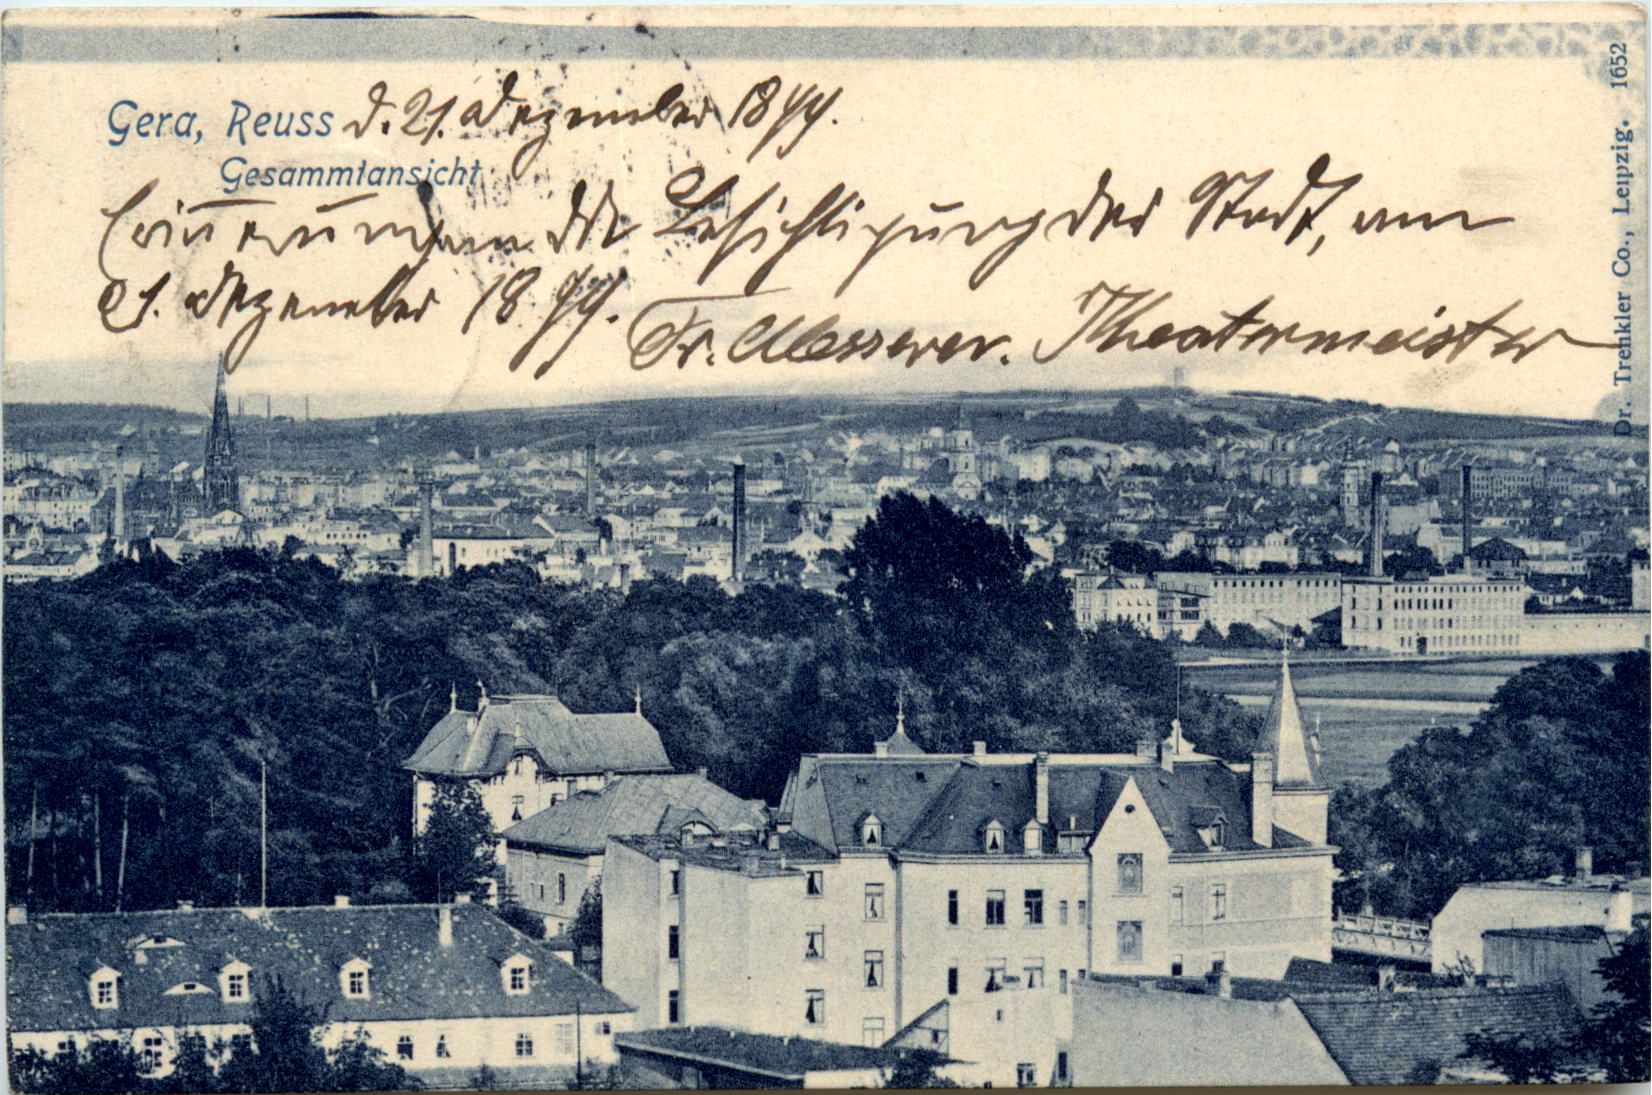 Gera, Reuss d. 21. Dezember 1899.
Gesammtansicht
Erinnerung an die Besichtigung der Stadt, am
21. Dezember 1899. Fr. Messerer. Theatermeister
Dr. Trenkler Co., Leipzig. 1652